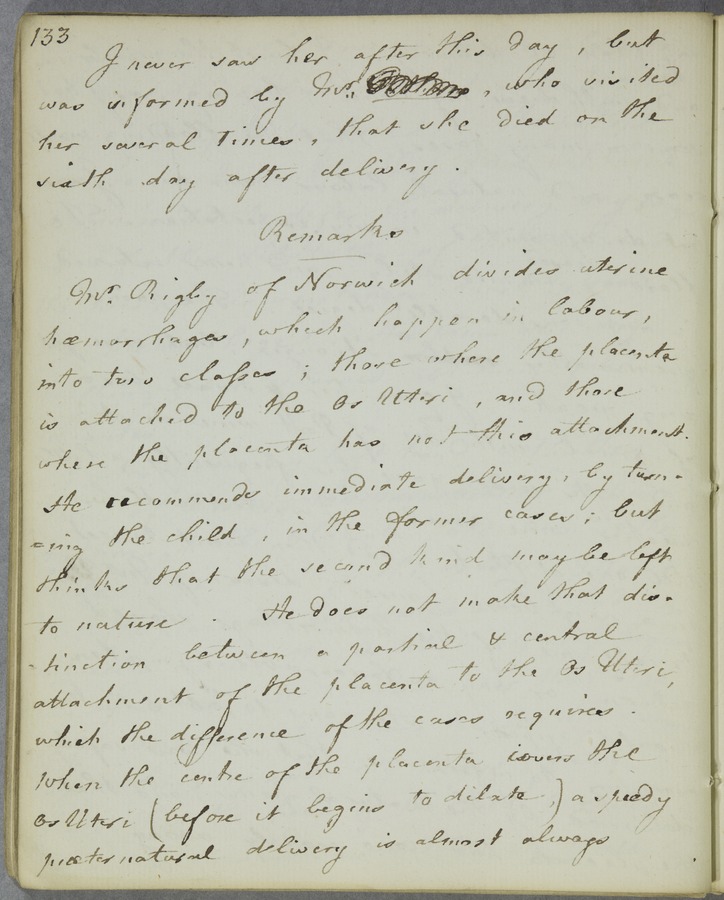 133
I never saw her after this day, but
was informed by Mr. , who visited
her several times, that she died on the
sixth day after delivery.
Remarks
Mr. Rigby of Norwich divides uterine
hæmorrhages, which happen in labour,
into two classes; those where the placenta
is attached to the Os Uteri, and those
where the placenta has not this attachment.
He recommends immediate delivery, by turn-
=ing the child, in the former cases; but
thinks that the second kind may be left
to nature. He does not make that dis-
-tinction between a partial & central
attachment of the placenta to the Os Uteri,
which the difference of the cases requires.
When the centre of the placenta covers the
Os Uteri (before it begins to dilate,) a speedy
præternatural delivery is almost always